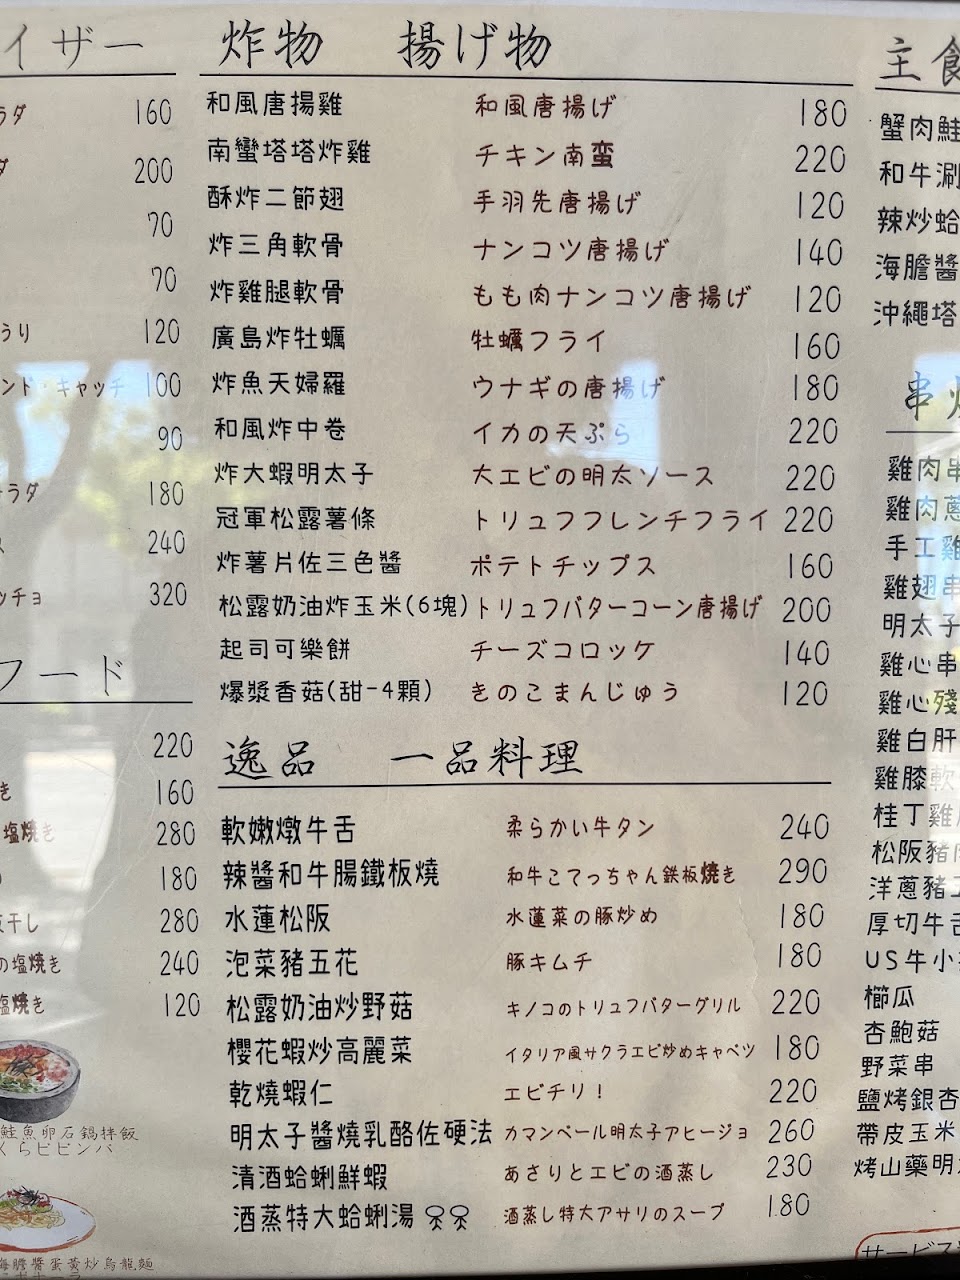 イザー
ラダ 160
ダ 200
70
70
うり 120
ンド・キャッチ 100
90
ーラダ 180
ス 240
ッチョ 320
フード
220
き 160
塩焼き 280
180
干し 280
の塩焼き 240
塩焼き 120
鮭魚卵石鍋拌飯
くらビビンバ
海膽醬蛋黃炒烏龍麵
ボナーラ
炸物 揚げ物
和風唐揚雞 和風唐揚げ 180
南蠻塔塔炸雞 チキン南蛮 220
酥炸二節翅 手羽先唐揚げ 120
炸三角軟骨 ナンコツ唐揚げ 140
炸雞腿軟骨 もも肉ナンコツ唐揚げ 120
廣島炸牡蠣 牡蠣フライ 160
炸魚天婦羅 ウナギの唐揚げ 180
和風炸中卷 イカの天ぷら 220
炸大蝦明太子 大エビの明太ソース 220
冠軍松露薯條 トリュフフレンチフライ 220
炸薯片佐三色醬 ポテトチップス 160
松露奶油炸玉米(6塊) トリュフバターコーン唐揚げ 200
起司可樂餅 チーズコロッケ 140
爆漿香菇(甜-4顆) きのこまんじゅう 120
逸品 一品料理
軟嫩燉牛舌 柔らかい牛タン 240
辣醬和牛腸鐵板燒 和牛こてっちゃん鉄板焼き 290
水蓮松阪 水蓮菜の豚炒め 180
泡菜豬五花 豚キムチ 180
松露奶油炒野菇 キノコのトリュフバターグリル 220
櫻花蝦炒高麗菜 イタリア風サクラエビ炒めキャベツ 180
乾燒蝦仁 エビチリ! 220
明太子醬燒乳酪佐硬法 カマンベール明太子アヒージョ 260
清酒蛤蜊鮮蝦 あさりとエビの酒蒸し 230
酒蒸特大蛤蜊湯 酒蒸し特大アサリのスープ 180
主食
蟹肉鮭
和牛涮
辣炒蛤
海膽醬
沖繩塔
串燒
雞肉串
雞肉蔥
手工雞
雞翅串
明太子
雞心串
雞心殘
雞白肝
雞膝軟
桂丁雞
松阪豬
洋蔥豬
厚切牛舌
US牛小
櫛瓜
杏鮑菇
野菜串
鹽烤銀杏
帶皮玉米
烤山藥明
サービス